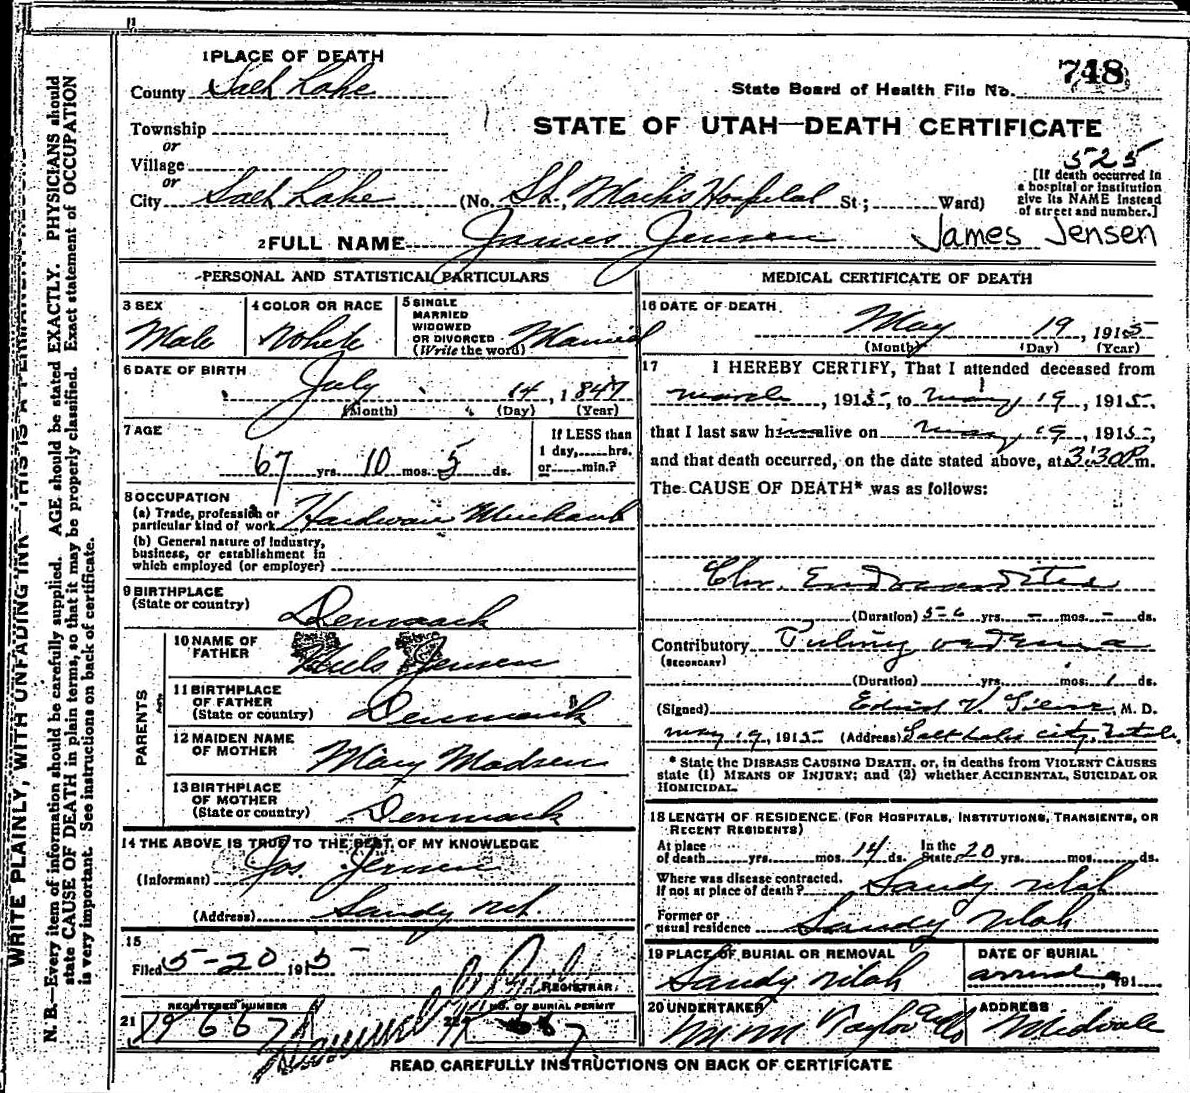 1 PLACE OF DEATH
County Salt Lake
State Board of Health File No. 748
Township
or
Village
or
City Salt Lake (No. St. Marks Hospital St; Ward)
STATE OF UTAH—DEATH CERTIFICATE
525
[If death occurred in
a hospital or institution
give its NAME instead
of street and number.]
2 FULL NAME James Jensen James Jensen
PERSONAL AND STATISTICAL PARTICULARS
3 SEX
Male
4 COLOR OR RACE
White
5 SINGLE
MARRIED
WIDOWED
OR DIVORCED
(Write the word) Married
6 DATE OF BIRTH
July 14, 1847
(Month) (Day) (Year)
7 AGE
67 yrs. 10 mos. 5 ds.
If LESS than
1 day, hrs.
or min.?
8 OCCUPATION
(a) Trade, profession or
particular kind of work Hardware Merchant
(b) General nature of industry,
business, or establishment in
which employed (or employer)
9 BIRTHPLACE
(State or country) Denmark
PARENTS
10 NAME OF
FATHER Jensen
11 BIRTHPLACE
OF FATHER
(State or country) Denmark
12 MAIDEN NAME
OF MOTHER Mary Madsen
13 BIRTHPLACE
OF MOTHER
(State or country) Denmark
14 THE ABOVE IS TRUE TO THE BEST OF MY KNOWLEDGE
(Informant) Jos. Jensen
(Address) Sandy Ut.
15
Filed 5-20 1915
REGISTRAR
REGISTERED NUMBER
21
22 NO. OF BURIAL PERMIT
MEDICAL CERTIFICATE OF DEATH
16 DATE OF DEATH
May 19, 1915
(Month) (Day) (Year)
17 I HEREBY CERTIFY, That I attended deceased from
March, 1915, to May 19, 1915,
that I last saw him alive on May 19, 1915,
and that death occurred, on the date stated above, at 3:30 P.m.
The CAUSE OF DEATH* was as follows:
Chr. Endocarditis
(Duration) yrs. – mos. – ds.
Contributory
(SECONDARY)
(Duration) yrs. mos. 1 ds.
(Signed) M. D.
May 19, 1915 (Address) Salt Lake City, Utah
* State the DISEASE CAUSING DEATH, or, in deaths from VIOLENT CAUSES
state (1) MEANS OF INJURY; and (2) whether ACCIDENTAL, SUICIDAL OR
HOMICIDAL.
18 LENGTH OF RESIDENCE (FOR HOSPITALS, INSTITUTIONS, TRANSIENTS, OR
RECENT RESIDENTS)
At place
of death yrs. mos. 14 ds. In the
State 20 yrs. mos. ds.
Where was disease contracted.
If not at place of death? Sandy Utah
Former or
usual residence Sandy Utah
19 PLACE OF BURIAL OR REMOVAL
Sandy Utah
DATE OF BURIAL
191
20 UNDERTAKER
Taylor
ADDRESS
Midvale
READ CAREFULLY INSTRUCTIONS ON BACK OF CERTIFICATE
WRITE PLAINLY, WITH UNFADING INK—THIS IS A PERMANENT
N. B.—Every item of information should be carefully supplied. AGE should be stated EXACTLY. PHYSICIANS should
state CAUSE OF DEATH in plain terms, so that it may be properly classified. Exact statement of OCCUPATION
is very important. See instructions on back of certificate.